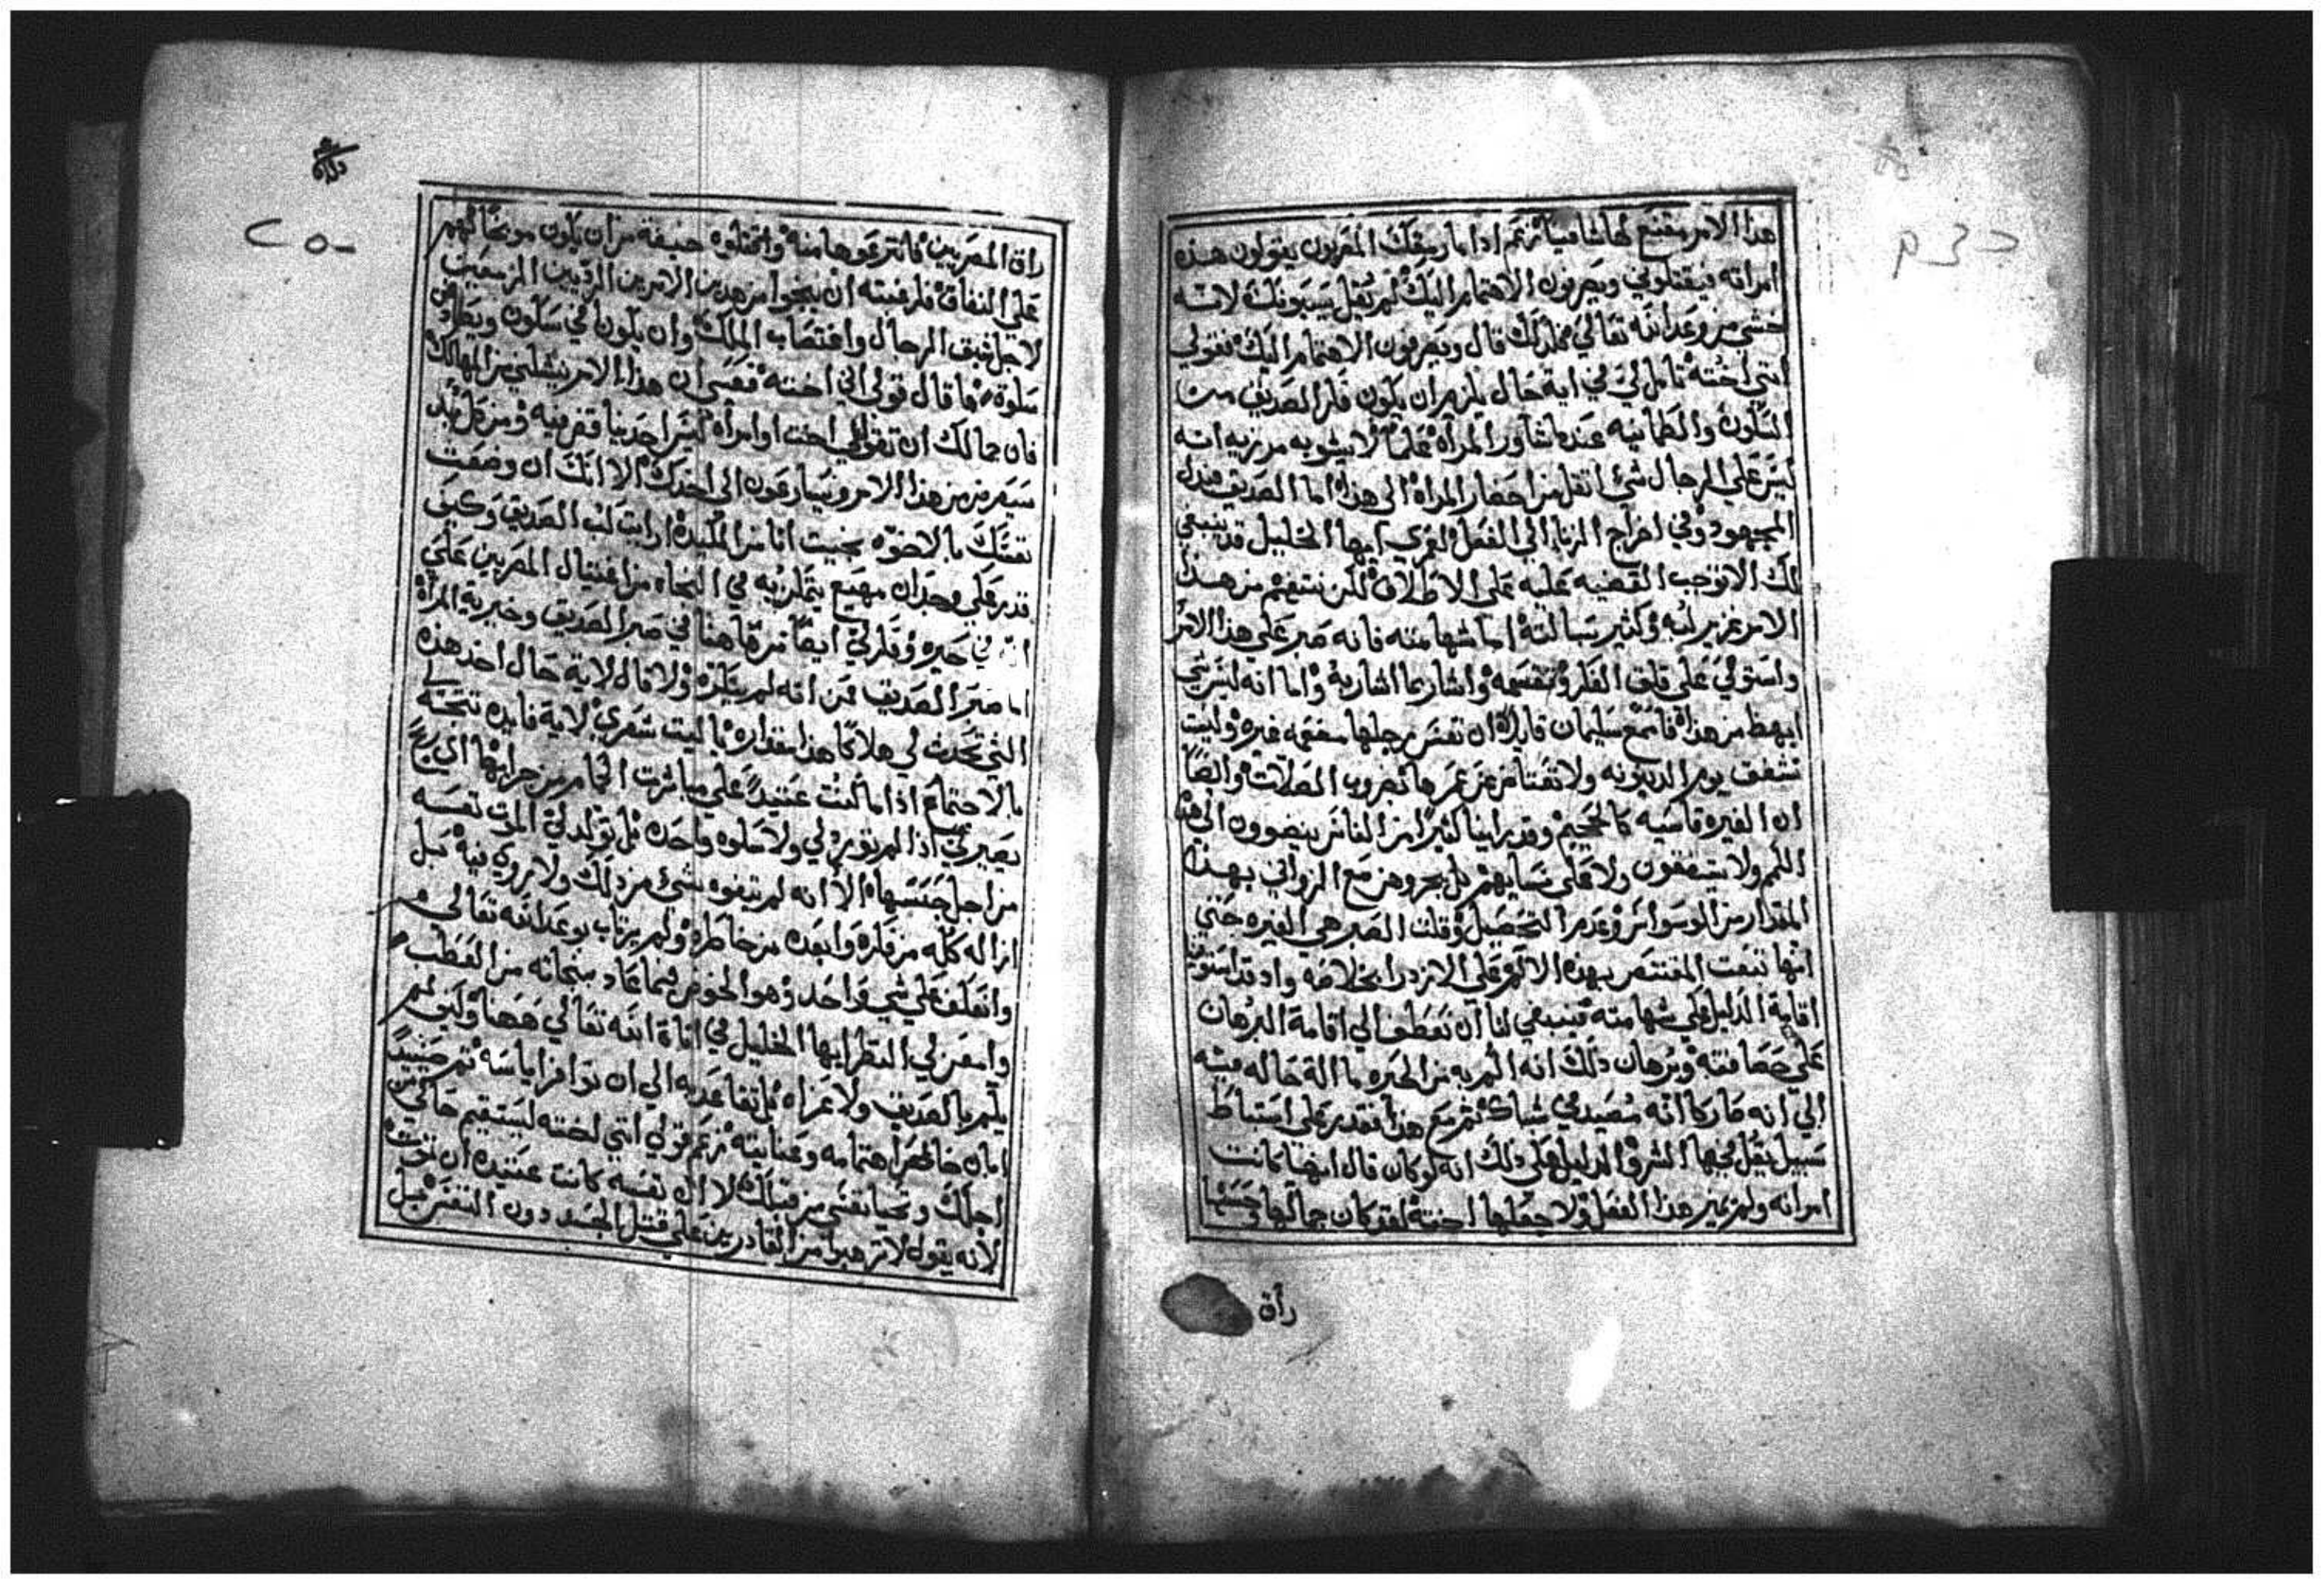 هذا الامر مقنع لها شافيا تزعم اذا ما رمقك المصريون يقولون هذه
امراته فيقتلوني ويصرفون الاهتمام اليك لم يقل يسبونك لانه
خشي من وعد الله تعالى فلذلك قال ويصرفون الاهتمام اليك فقولي
انني اخته تامل لي في اية حال يلزم ان يكون فكر الصديق من
السكون والطمانيه عندما شاور المراه علما لا يشوبه مرزيه انه
ليس على الرجال شي اثقل من احضار المراه الى هذا اما الصديق فبذل
المجهود في اخراج الزنا الى الفعل لعمري ايها الخليل قد ينبغي
لك الا توجب القضيه عليه على الاطلاق لكن نتفهم من هذا
الامر غزير لبه وكثير بسالته اما شهامته فانه صبر على هذا الامر
واستولى على قلق الفكر وتقسمه واشار بما اشار به واما انه ليس شي
ابهظ من هذا فاسمع سليمان قايلا ان نفس رجلها مفعمه غيره وليست
تشفق يوم الدينونه ولا تفتا من عن عمرها بضروب الصلات وايضا
ان الغيره قاسيه كالجحيم وقد راينا كثيرا من الناس ينضوون الى هذا
الكم ولا يشفقون ولا على نسايهم بل يجروهن مع الزواني بهذا
المقدار من الوسواس وعدم التحصيل وقلت الصبر هي الغيره حتى
انها تبعت المقتنص بهذه الالام على الازدرا بخلاصه واذ قد استوفينا
اقامة الدليل على شهامته فينبغي لنا ان نعطف الى اقامة البرهان
على حصافته وبرهان ذلك انه الم به من الحيره ما الة حاله فيه
الى انه صار كانه مصيد في شباك ثم مع هذا فقدر على استنباط
سبيل يقل فيها الشر والدليل على ذلك انه لو كان قال انها كانت
امراته ولم يميز هذا الفعل ولا جعلها اخته لقد كان جمالها وحسنها
راق
٢٥٠
راق المصريين فانتزعوها منه واقتلوه خيفة من ان يكون موبخا لهم
على النفاق فلرغبته ان ينجوا من هذين الامرين الرديين المزمعين
لاجل شبق الرجال واغتصاب الملك وان يكونا في سكون ويصادفا
سلوة ما قال قولي انني اخته فعسى ان هذا الامر ينشلني من المهالك
فان جمالك ان تقولي اخت او امراه ليس احد بنا قفرنيه ومن كل بد
سيعرفن من هذا الامر ويسارعون الى اخذك الا انك ان وضعت
نفسك بالاخوه نجيت انا من المكيده ارايت لب الصديق وكيف
قدر على وجدان مهيع يتمكن به في النجاه من اغتيال المصريين على
انه في حيره وفكر لي ايضا من هاهنا في صبر الصديق وخيرية المراه
اما صبر الصديق فمن انه لم يتكره ولا قال لاية حال اخذ هذه
التي تحدث لي هلاكا هذا مقداره يا ليت شعري لاية فايده نتجته لي
بالاجتماع اذا ما كنت عتيدا على مباشرت الحمام من جرايها اي ربح
يصير لي اذا لم توثر لي ولا سلوه واحده بل تولد لي الموت نفسه
من اجل حسنها الا انه لم يتفوه بشي من ذلك ولا روي فيه بل
ازاله كله من فكره وابعده من خاطره ولم يرتاب بوعد الله تعالى
وانعكف على شي واحد وهو الخوض فيما عاد بنجاته من العطب
وامعن لي النظر ايها الخليل في اناة الله تعالى ههنا وكيف لم
يلم بالصديق ولا عزاه بل تقاعد به الى ان توافر اياسه ثم حينيذ
ابان خالص اهتمامه وعنايته تزعم قولي انني لخته ليستقيم حالي من
اجلك وتحيا نفسي من قبلك لا ان نفسه كانت عتيده ان تموت
لانه يقول لا ترهبوا من القادرين على قتل الجسد دون النفس بل